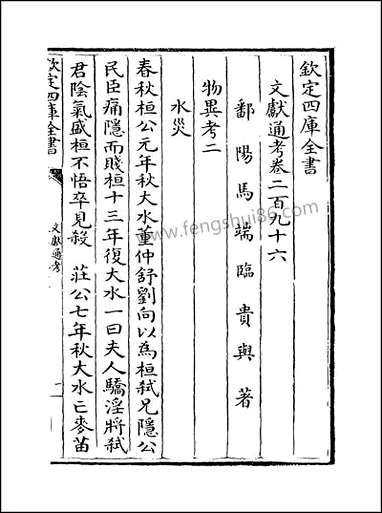 欽定四庫全書
文獻通考卷二百九十六
鄱陽馬端臨貴與著
物異考二
水災
春秋桓公元年秋大水董仲舒劉向以為桓弑兄隱公
民臣痛隱而賤桓十三年復大水一曰夫人驕淫將弑
君陰氣盛桓不悟卒見殺 莊公七年秋大水亡麥苗
欽定四庫全書
文獻通考
一
www.fengshui86.com